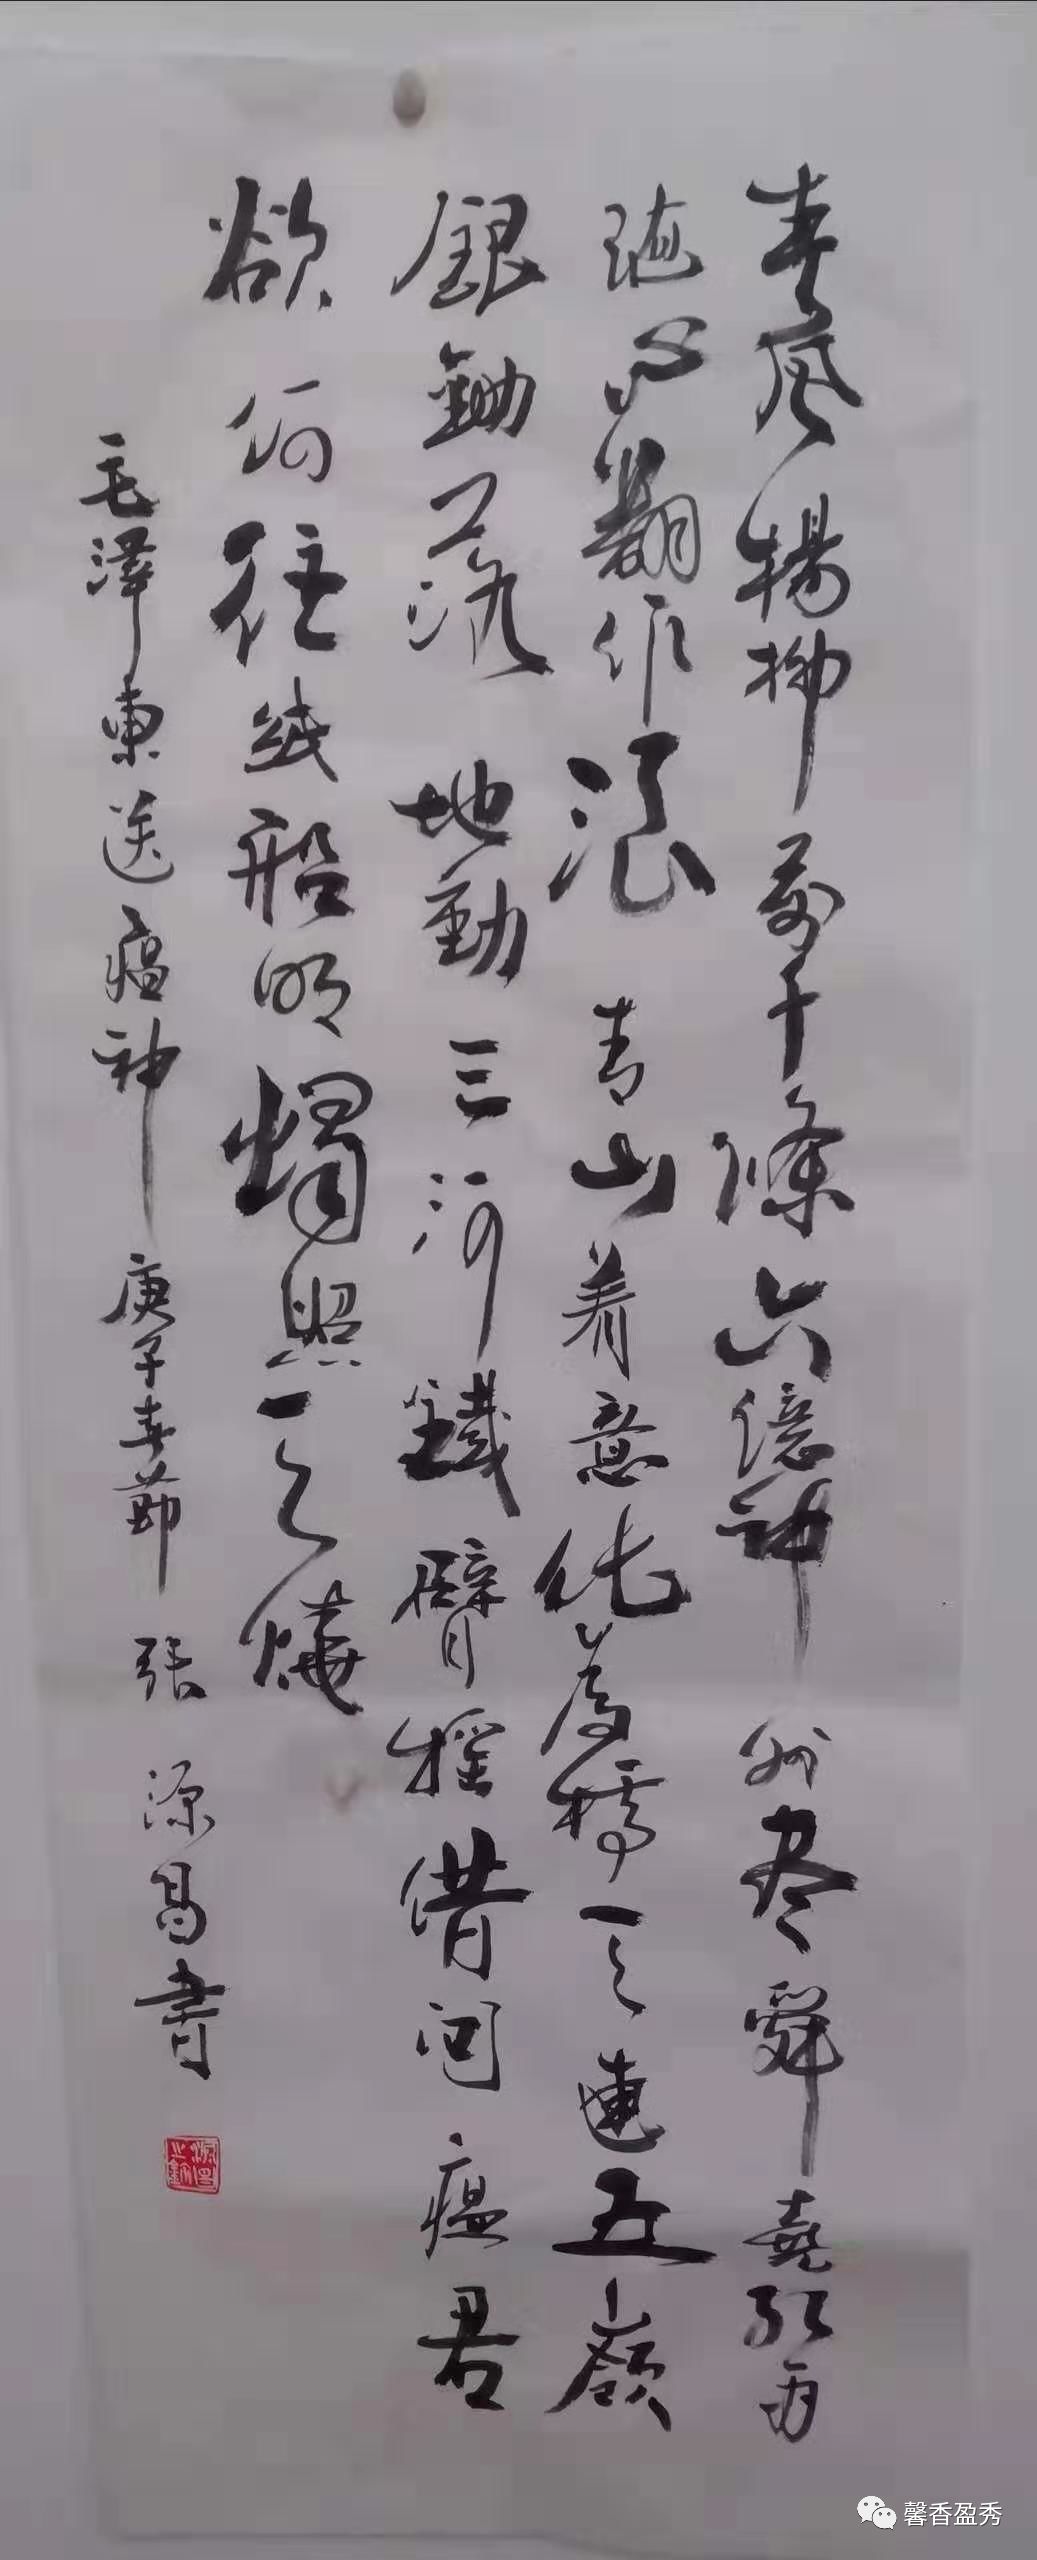 春風楊柳萬千條六億神州尽舜堯紅雨
随心翻作浪青山着意化為橋天連五嶺
銀鋤落地動三河鐵臂摇借問瘟君
欲何往纸船明燭照天燒
毛澤東送瘟神 庚子春節 張源昌書
馨香盈秀